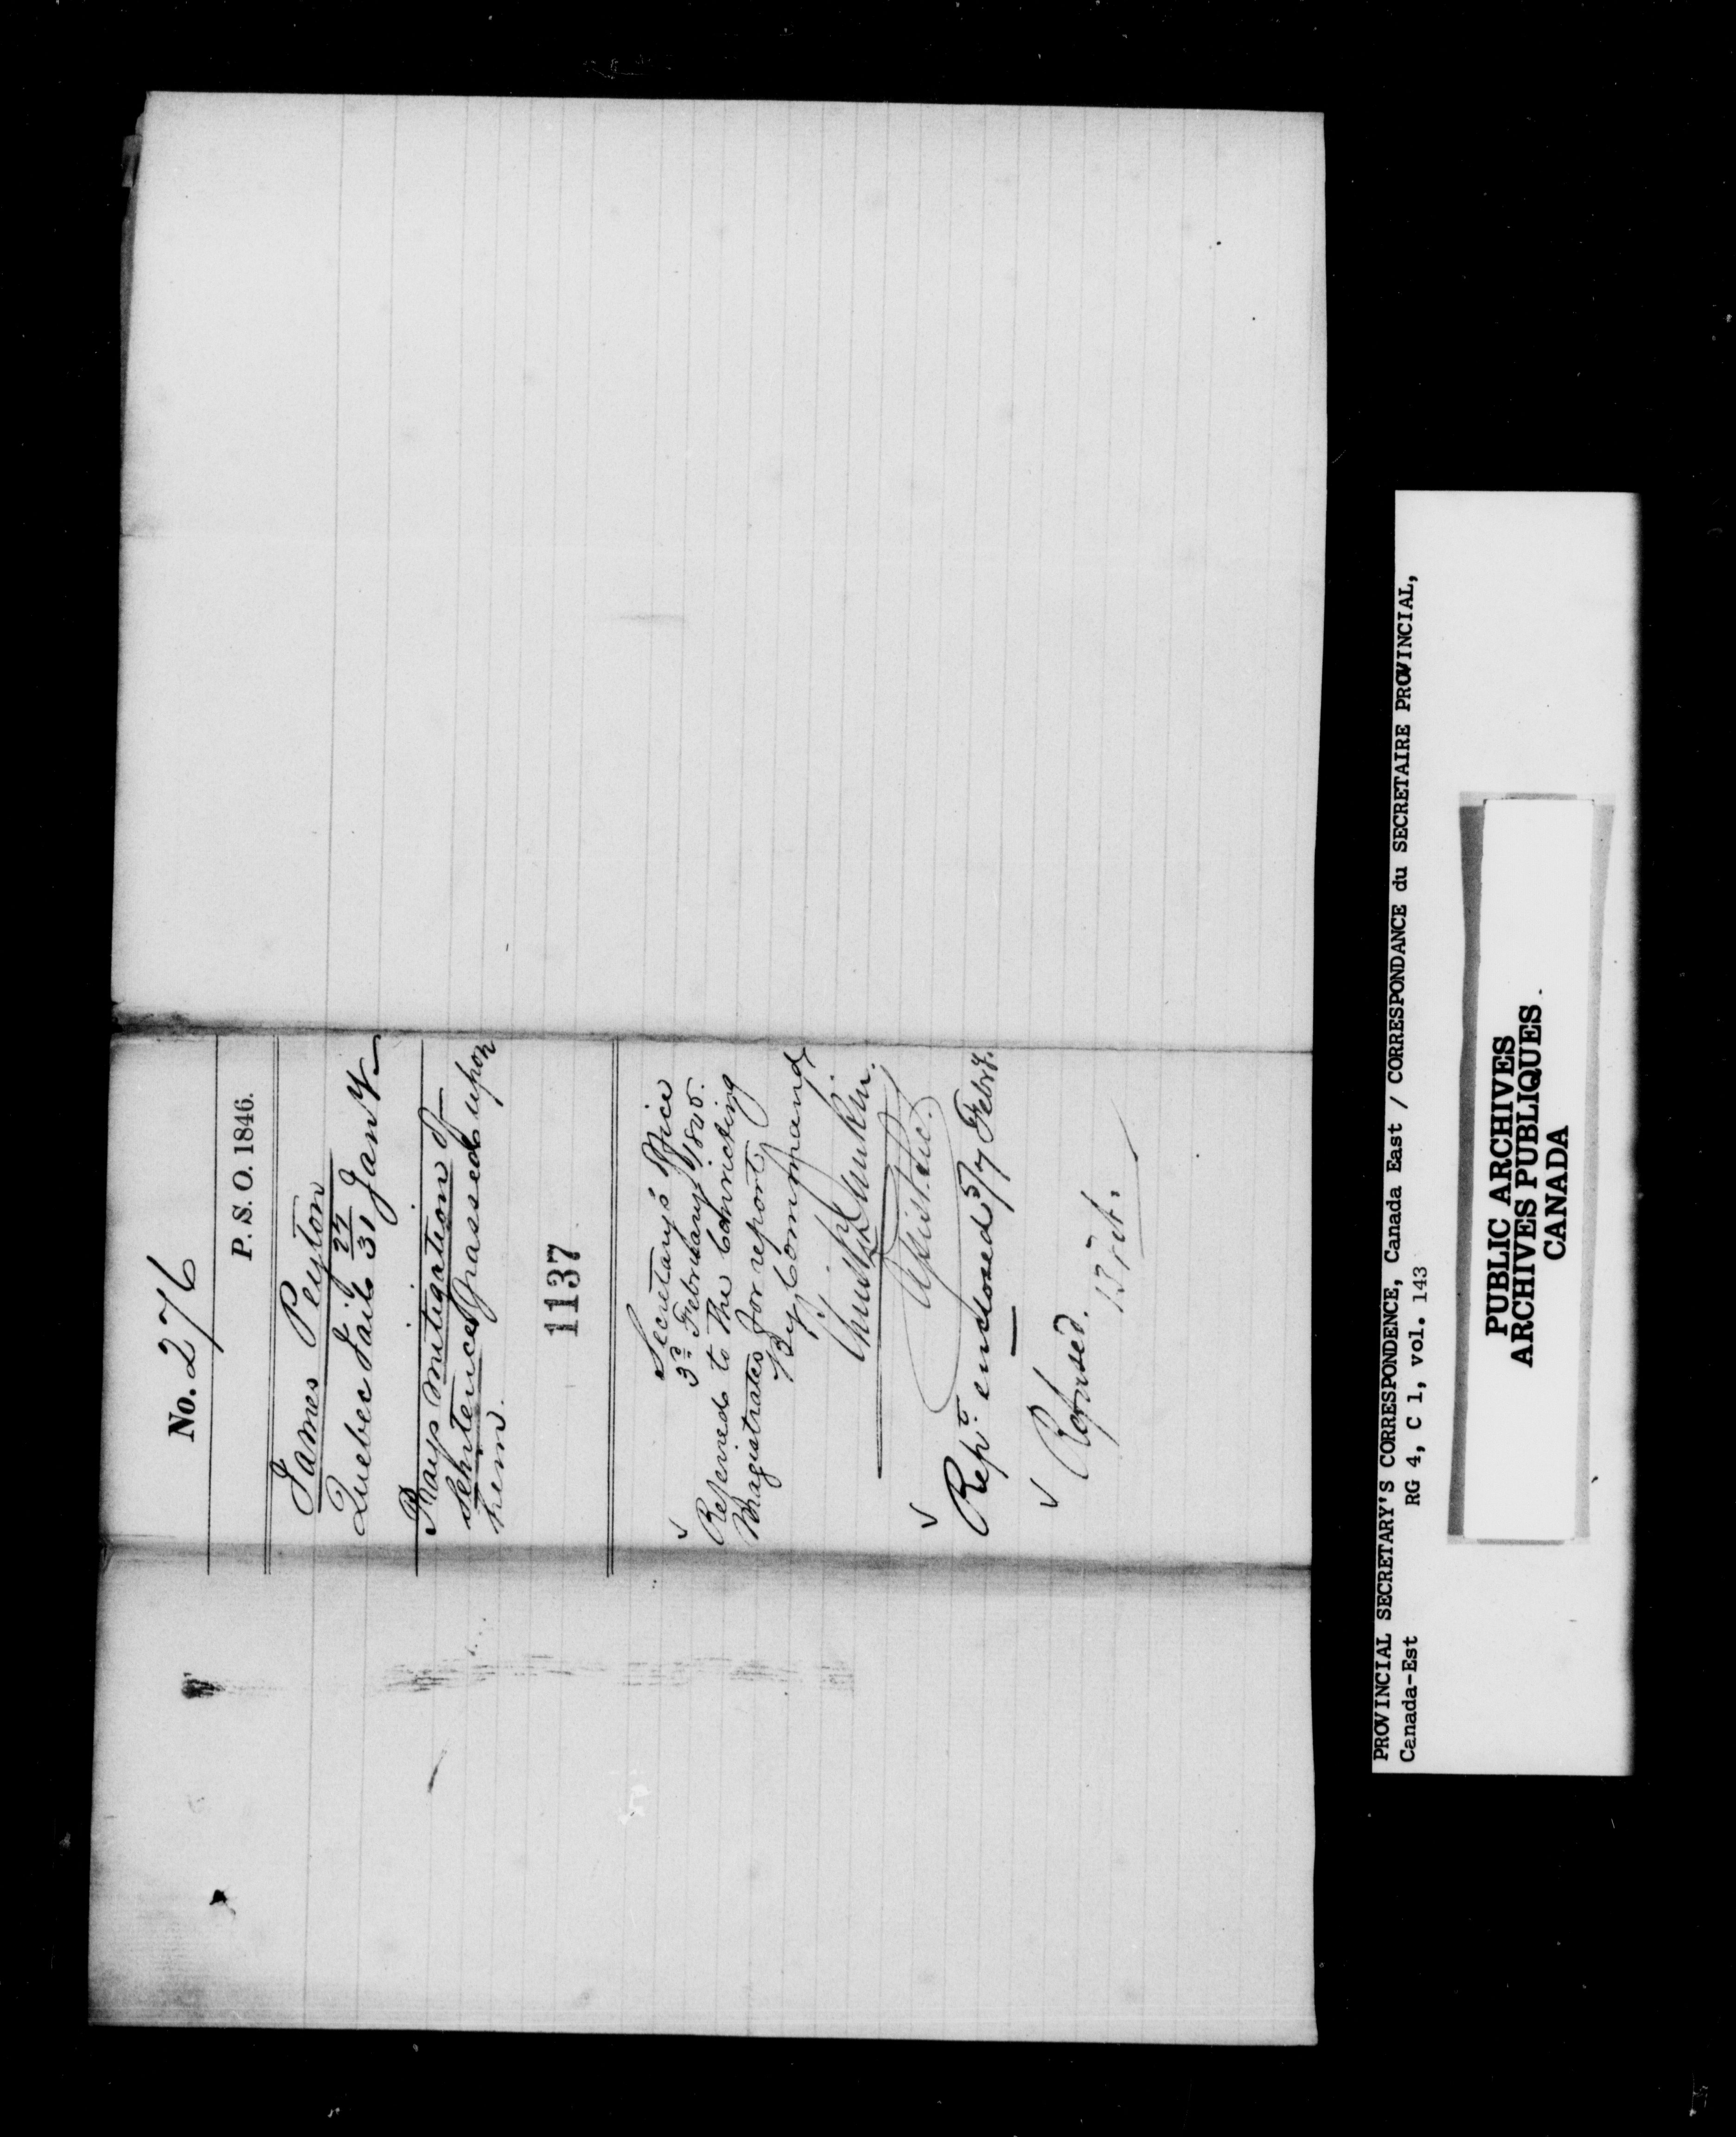 No. 276
P. S. O. 1846.
James Peyton
Quebec Jail 27/31 Jany
Prays mitigation of
sentence passed upon
him.
1137
Secretary's Office
3d February
Referred to the Convicting
Magistrates for report
By Command
Assist. Sec.
Rept. enclosed 5/7 Febry.
Refused.
PROVINCIAL SECRETARY'S CORRESPONDENCE, Canada East / CORRESPONDANCE du SECRETAIRE PROVINCIAL,
Canada-Est RG 4, C 1, vol. 143
PUBLIC ARCHIVES
ARCHIVES PUBLIQUES
CANADA